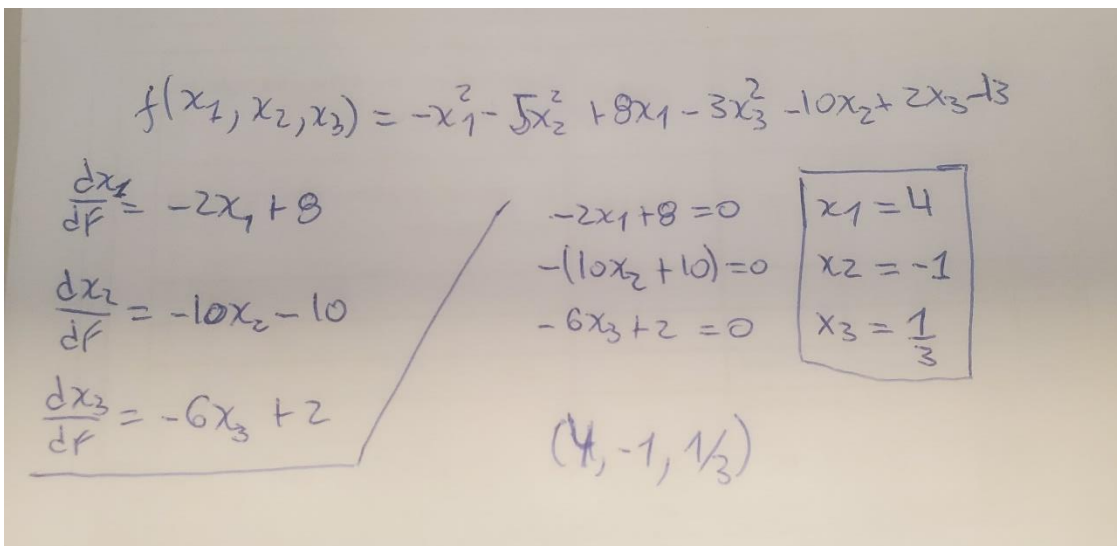 f(x₁, x₂, x₃) = -x₁² - 5x₂² + 8x₁ - 3x₃² - 10x₂ + 2x₃ - 13
dx₁/dF = -2x₁ + 8
dx₂/dF = -10x₂ - 10
dx₃/dF = -6x₃ + 2
-2x₁ + 8 = 0
-(10x₂ + 10) = 0
-6x₃ + 2 = 0
x1 = 4
x2 = -1
x3 = 1/3
(4, -1, 1/3)